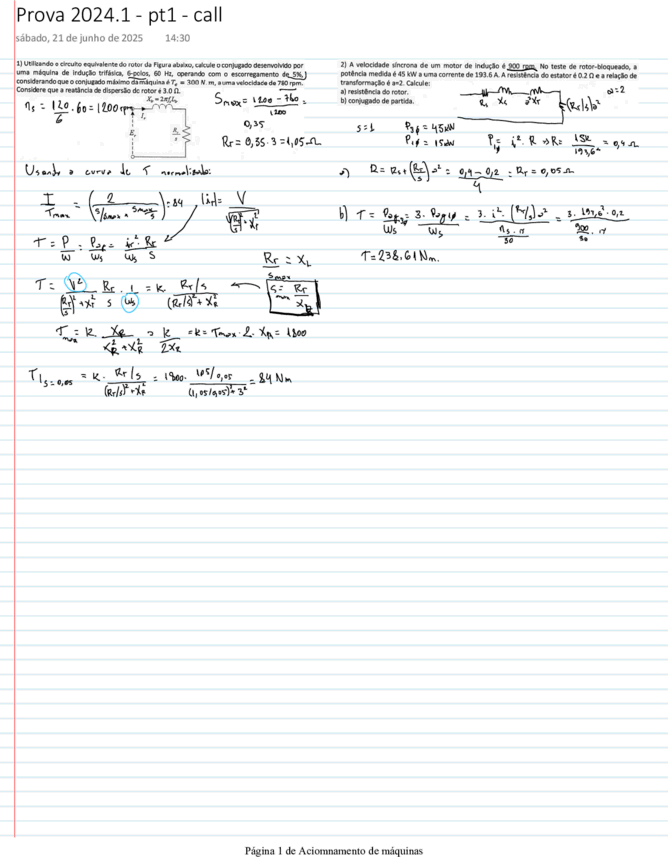 Prova 2024.1 - pt1 - call
sábado, 21 de junho de 2025 14:30
1) Utilizando o circuito equivalente do rotor da Figura abaixo, calcule o conjugado desenvolvido por
uma máquina de indução trifásica, 6-polos, 60 Hz, operando com o escorregamento de 5%,
considerando que o conjugado máximo da máquina é T₀ = 300 N. m, a uma velocidade de 780 rpm.
Considere que a reatância de dispersão do rotor é 3.0 Ω.
ns = 120/6 . 60 = 1200 rpm
Smax = 1200 - 780 / 1200 =
0,35
Rr = 0,35 . 3 = 1,05 Ω
Usando a curva de T normalizado:
T/Tmax = (2 / (s/smax + smax/s)) = 84
|ir| = V / √((Rr/s)² + Xr²)
T = P/ω = Pag/ωs = ir²/ωs . Rr/s
Rr/smax = XL
T = V² / ((Rr/s)² + Xr²) . Rr/s . 1/ωs = k Rr/s / ((Rr/s)² + XR²)
smax = Rr/XR
Tmax = k . XR / (XR² + XR²) → k / 2XR = k = Tmax . 2 . XR = 1800
T|s=0,05 = k . Rr/s / ((Rr/s)² + XR²) = 1800 . 1,05/0,05 / ((1,05/0,05)² + 3²) = 84 Nm
2) A velocidade síncrona de um motor de indução é 900 rpm. No teste de rotor-bloqueado, a
potência medida é 45 kW a uma corrente de 193.6 A. A resistência do estator é 0.2 Ω e a relação de
transformação é a=2. Calcule:
a) resistência do rotor.
b) conjugado de partida.
Rs Xs a²Xr (Rr/s)a² a=2
s=1
P3φ = 45kW
P1φ = 15kW
P1φ = i² . R → R = 15k / 193,6² = 0,4 Ω
a) R = Rs + (Rr/s) a² = 0,4 - 0,2 / 4 = Rr = 0,05 Ω
b) T = Pag3φ / ωs = 3 . Pag1φ / ωs = 3 . i² . (Rr/s) a² / (ns . π / 30) = 3 . 193,6² . 0,2 / (900/30 . π)
T = 238,61 Nm.
Página 1 de Aciomnamento de máquinas